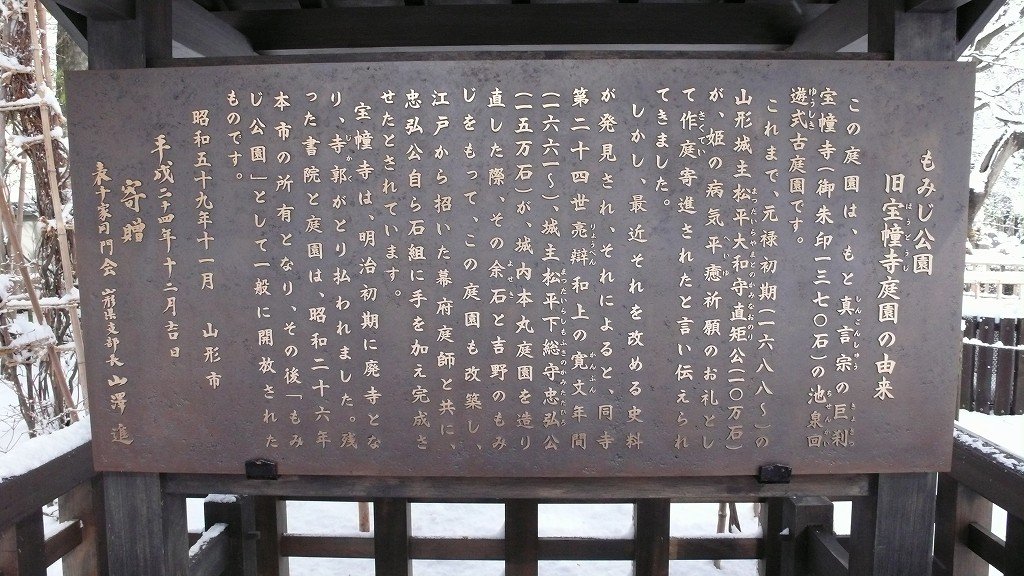 もみじ公園
旧宝幢寺庭園の由来
この庭園は、もと真言宗の巨刹
宝幢寺(御朱印一三七〇石)の池泉回
遊式古庭園です。
これまで、元禄初期(一六八八~)の
山形城主松平大和守直矩公(一〇万石)
が、姫の病気平癒祈願のお礼とし
て作庭寄進されたと言い伝えられ
てきました。
しかし、最近それを改める史料
が発見され、それによると、同寺
第二十四世亮辯和上の寛文年間
(一六六一~)、城主松平下総守忠弘公
(一五万石)が、城内本丸庭園を造り
直した際、その余石と吉野のもみ
じをもって、この庭園も改築し、
江戸から招いた幕府庭師と共に、
忠弘公自ら石組に手を加え完成さ
せたとされています。
宝幢寺は、明治初期に廃寺とな
り、寺郭がとり払われました。残
った書院と庭園は、昭和二十六年
本市の所有となり、その後「もみ
じ公園」として一般に開放された
ものです。
昭和五十九年十一月 山形市
平成二十四年十二月吉日
寄贈
表千家同門会 山形県支部長 山澤進